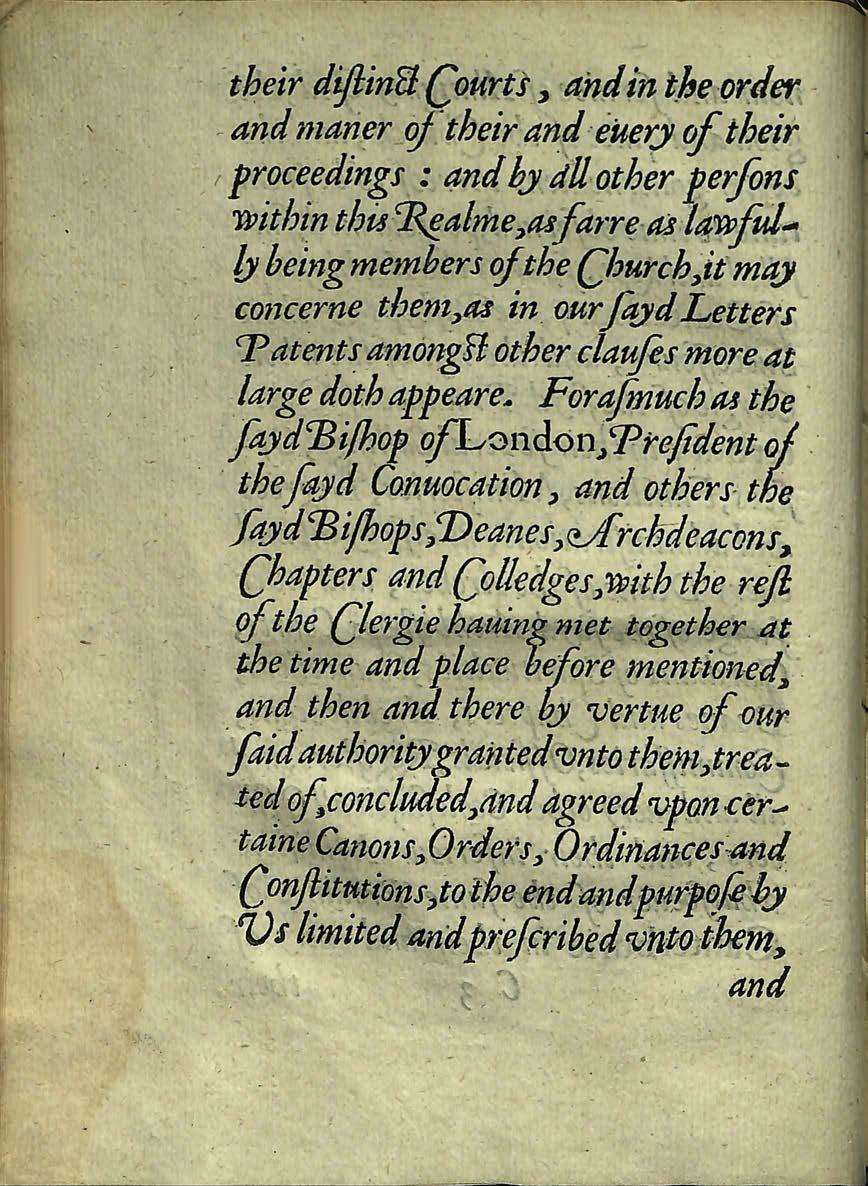 their diſtinct Courts, and in the order
and maner of their and euery of their
proceedings : and by all other perſons
within this Realme, as farre as lawful-
ly being members of the Church, it may
concerne them, as in our ſayd Letters
Patents amongſt other clauſes more at
large doth appeare. Foraſmuch as the
ſayd Biſhop of London, Preſident of
the ſayd Conuocation, and others the
ſayd Biſhops, Deanes, Archdeacons,
Chapters and Colledges, with the reſt
of the Clergie hauing met together at
the time and place before mentioned,
and then and there by vertue of our
ſaid authority granted vnto them, trea-
ted of, concluded, and agreed vpon cer-
taine Canons, Orders, Ordinances and
Conſtitutions, to the end and purpoſe by
Vs limited and preſcribed vnto them,
and